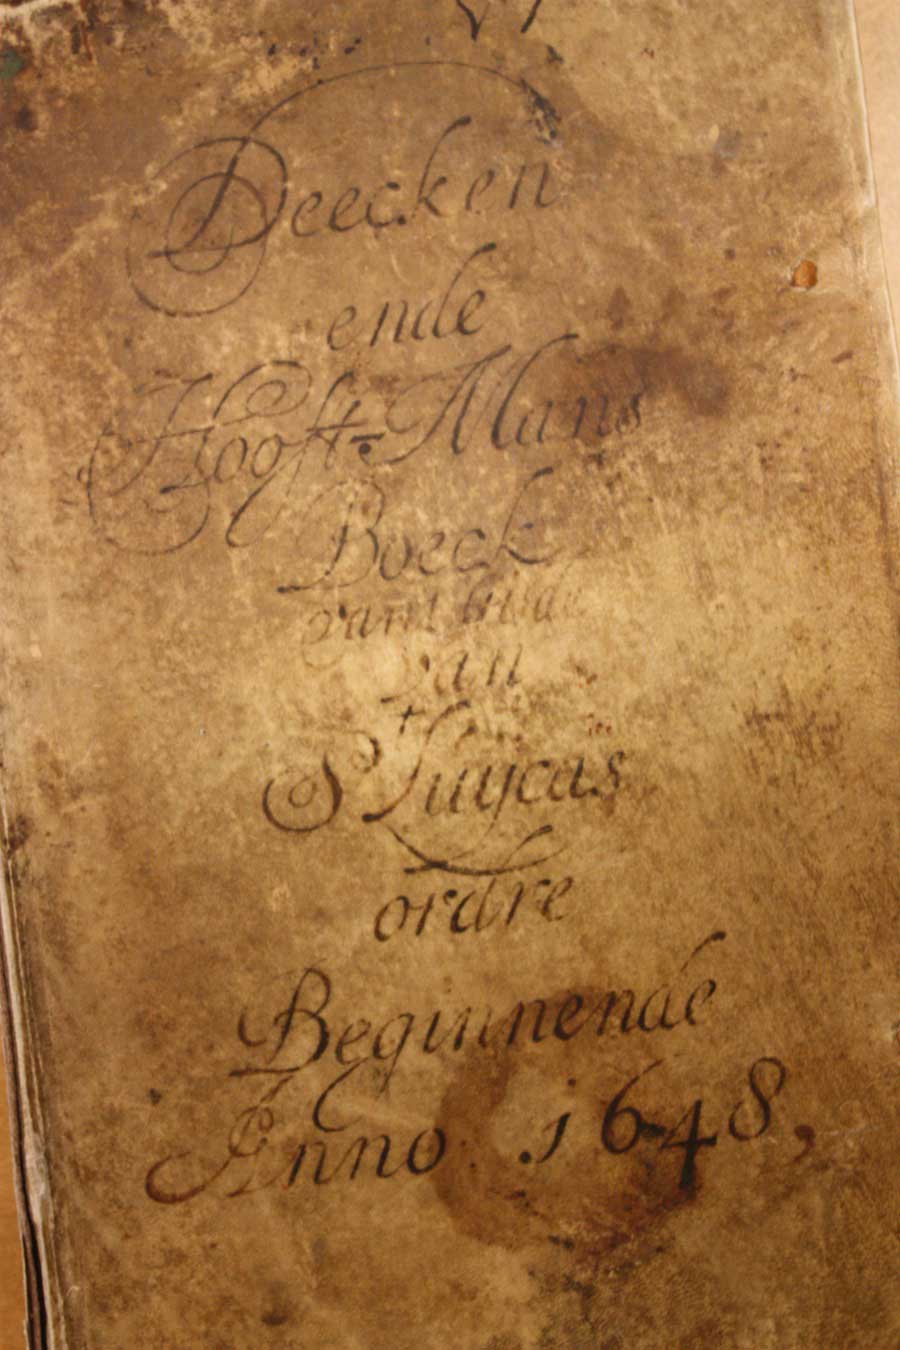 VI
Deecken
ende
Hooft=Mans
Boeck
vant
van
St Luijcas
ordre
Beginnende
Anno 1648,